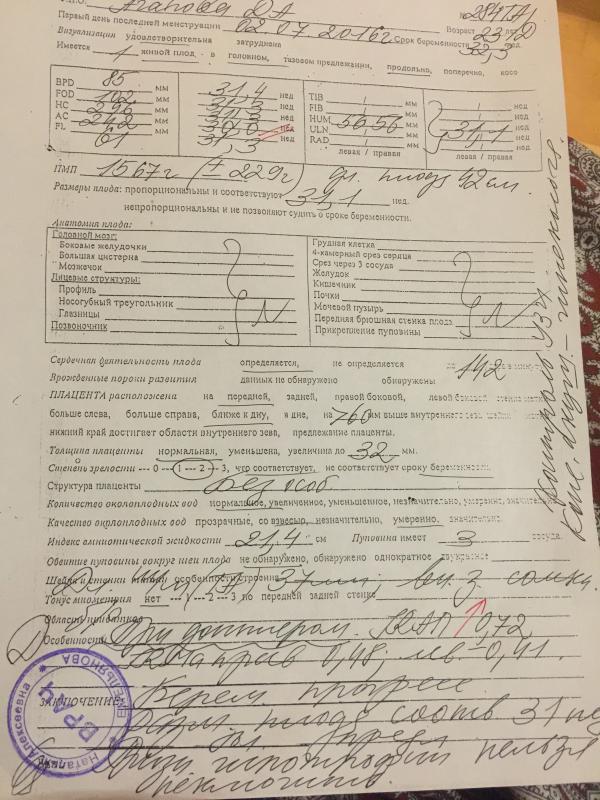 Агапова Д.А № 2847А/1
Первый день последней менструации 02.07.2016г Возраст 23 лет
Визуализация удовлетворительна затруднена Срок беременности 32,3 нед.
Имеется 1 живой плод, в головном, тазовом предлежании, продольно, поперечно, косо
BPD 85 мм 31,4 нед TIB мм нед
FOD 102 мм 31,3 нед FIB мм нед
HC 296 мм 31,3 нед HUM 56,56 мм 31,1 нед
AC 242 мм нед ULN мм нед
FL 61 31,3 нед RAD мм нед
левая / правая левая / правая
ПМП 1567г (± 229г) дл. плода 42 см.
Размеры плода: пропорциональны и соответствуют 31,1 нед.
непропорциональны и не позволяют судить о сроке беременности.
Анатомия плода:
Головной мозг: Грудная клетка
Боковые желудочки 4-камерный срез сердца
Большая цистерна Срез через 3 сосуда
Мозжечок Желудок
Лицевые структуры: Кишечник
Профиль Почки
Носогубный треугольник N Мочевой пузырь N
Глазницы Передняя брюшная стенка плода
Позвоночник Прикрепление пуповины
Сердечная деятельность плода определяется, не определяется до 142 в минуту
Врожденные пороки развития данных не обнаружено обнаружены
ПЛАЦЕНТА расположена на передней, задней, правой боковой, левой боковой стенке матки
больше слева, больше справа, ближе к дну, в дне, на >60 мм выше внутреннего зева
нижний край достигает области внутреннего зева, предлежание плаценты.
Толщина плаценты нормальная, уменьшена, увеличина до 32 мм.
Степень зрелости --- 0 --- 1 --- 2 --- 3, что соответствует, не соответствует сроку беременности
Структура плаценты без особ
Количество околоплодных вод нормальное, увеличенное, уменьшенное, незначительно, умеренно,
Качество околоплодных вод прозрачные, со взвесью, незначительно, умеренно, значительно
Индекс амниотической жидкости 21,4 см Пуповина имеет 3 сосуда.
Обвитие пуповины вокруг шеи плода не обнаружено, обнаружено однократное двукратное
Шейка и стенки матки особенности строения 37мм, вн. з. сомкн.
Тонус миометрия нет --- 1 --- 2 --- 3 по передней задней стенке
Область придатков
Особенности При допплером. 0,72
прав 0,48, лев - 0,41.
ЗАКЛЮЧЕНИЕ: Берем. прогресс
плода соотв 31 нед
гипотрофии нельзя
исключить.
контроль УЗИ
конс. акуш. - гинеколога
ВРАЧ
Наталья Алексеевна